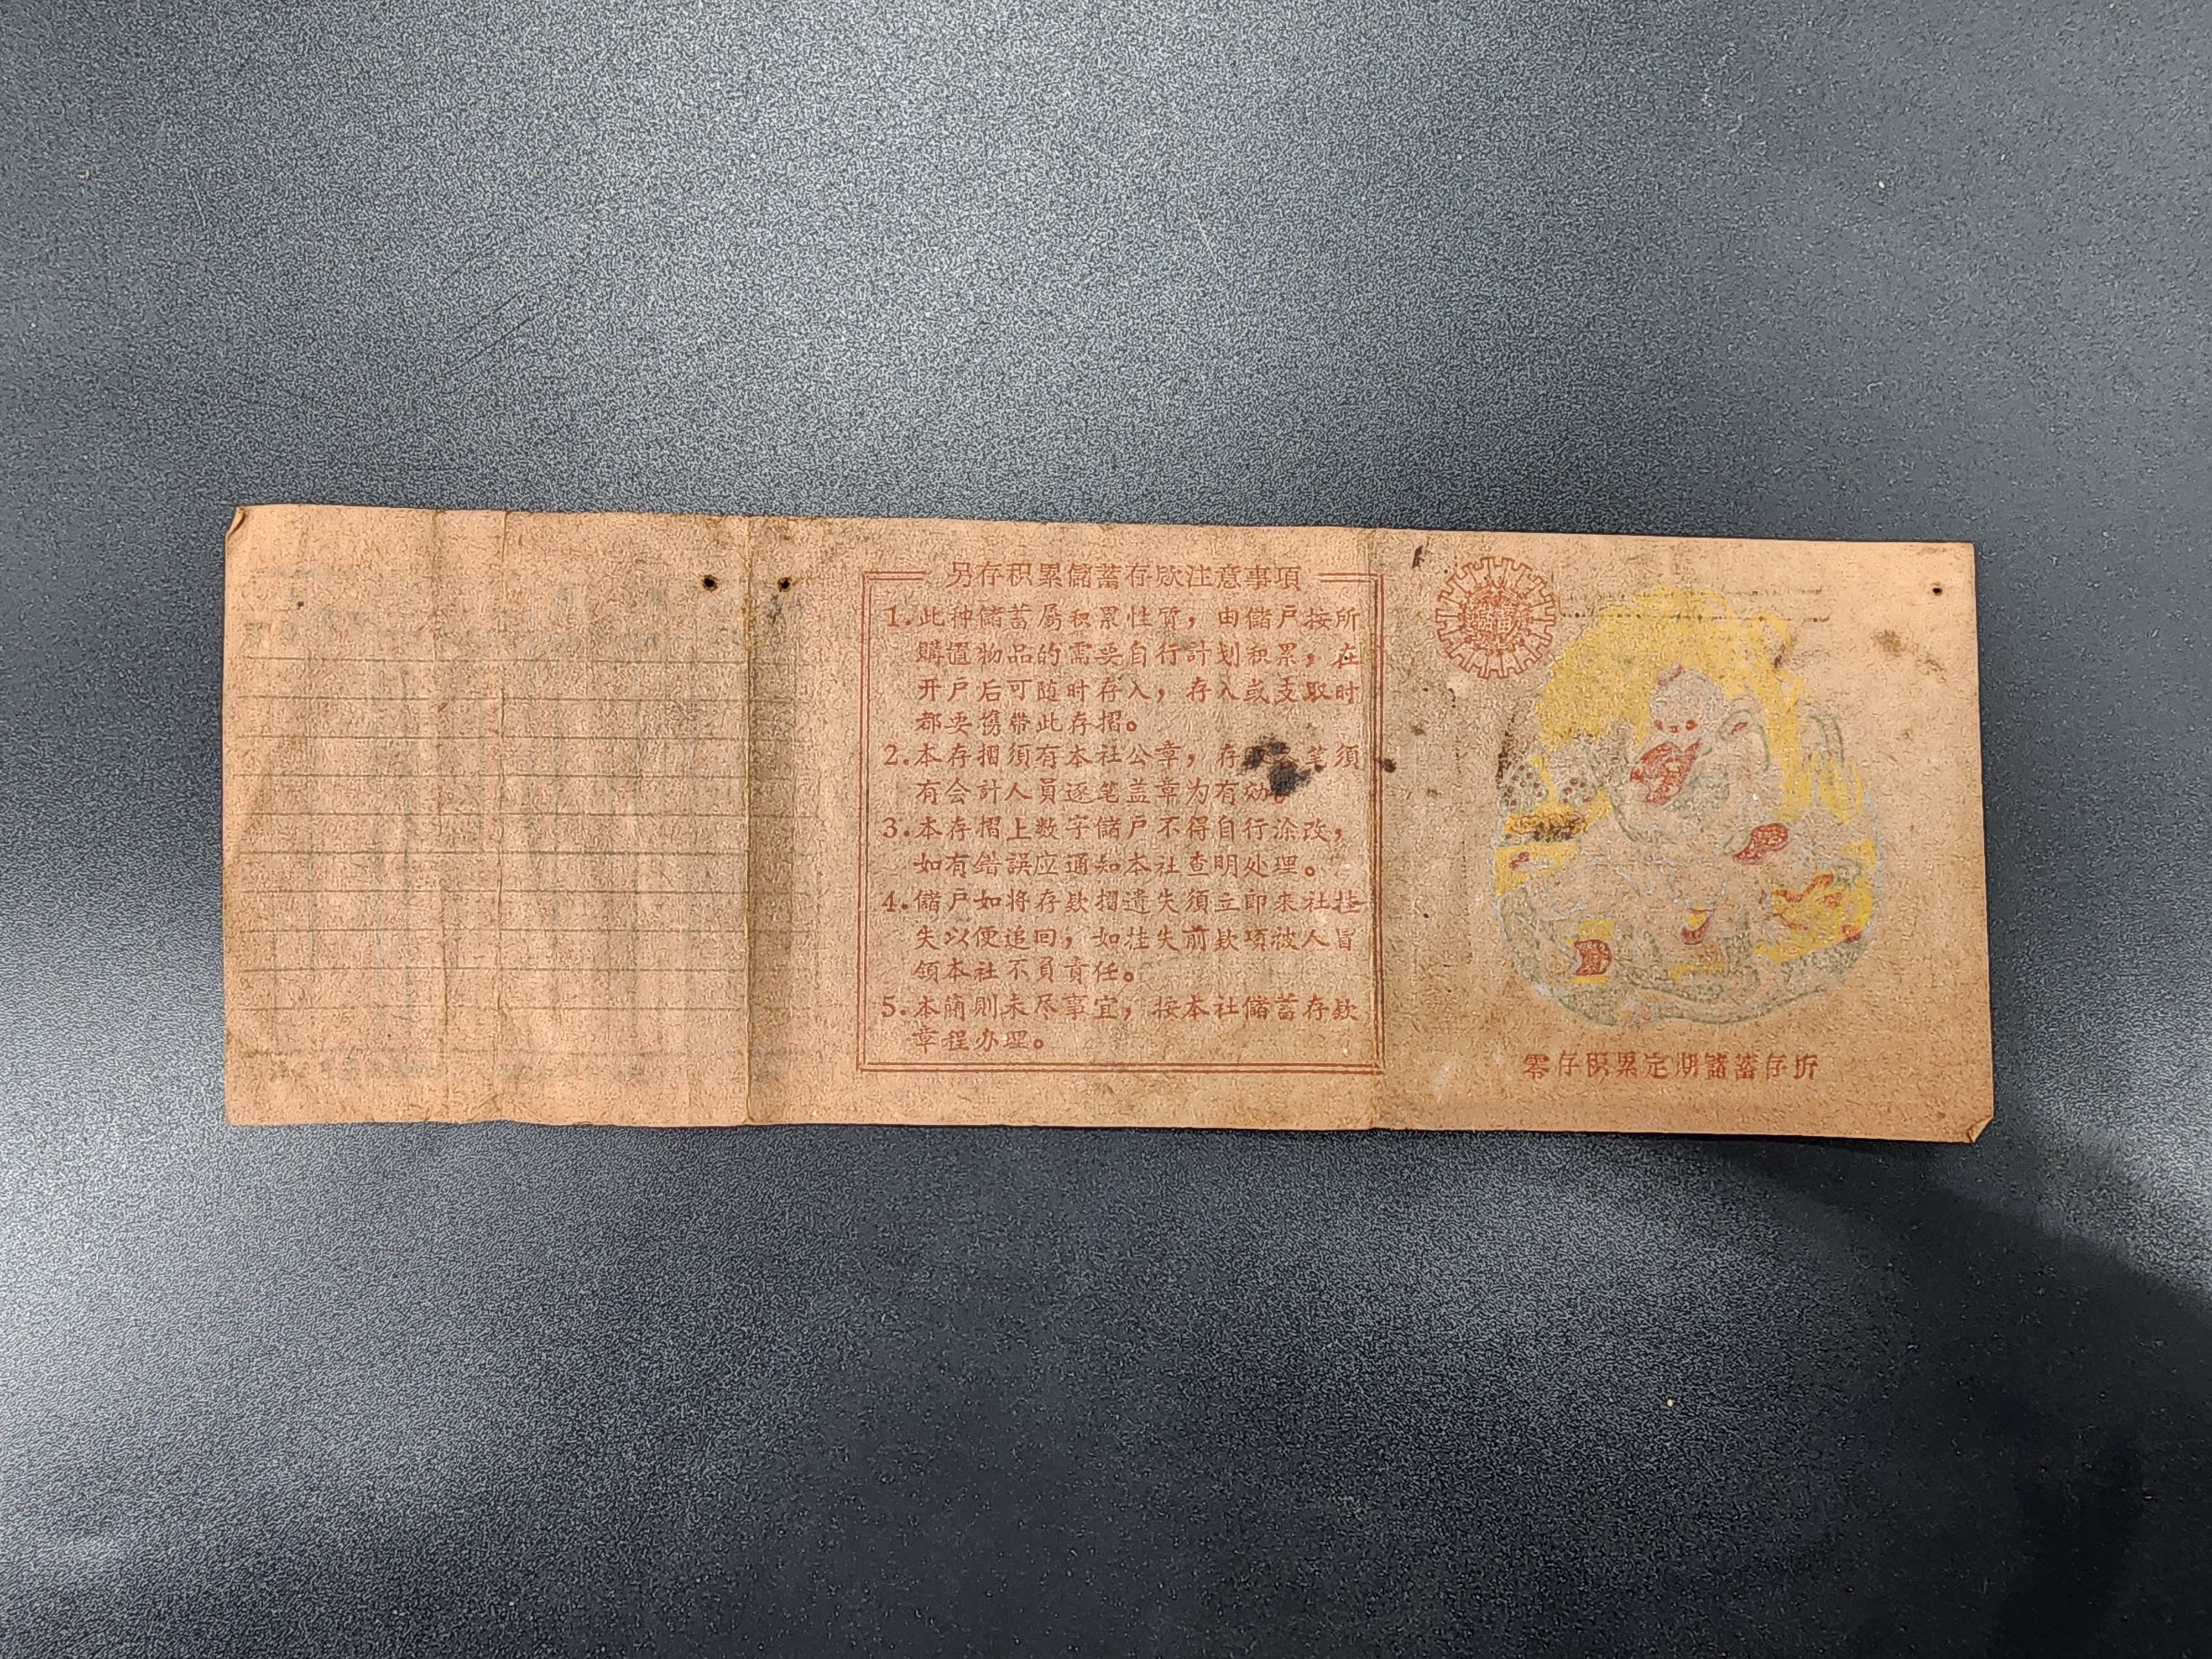 另存积累儲蓄存欵注意事項
1.此种儲蓄属积累性質，由儲戶按所
購置物品的需要自行計划积累，在
开戶后可随时存入，存入或支取时
都要携带此存摺。
2.本存摺須有本社公章，存 笔須
有会計人員逐笔盖章为有効。
3.本存摺上数字儲戶不得自行涂改，
如有錯誤应通知本社查明处理。
4.儲戶如将存欵摺遺失須立即来社挂
失以便追回，如挂失前欵項被人冒
領本社不負責任。
5.本簡則未尽事宜，按本社儲蓄存欵
章程办理。
零存积累定期儲蓄存折